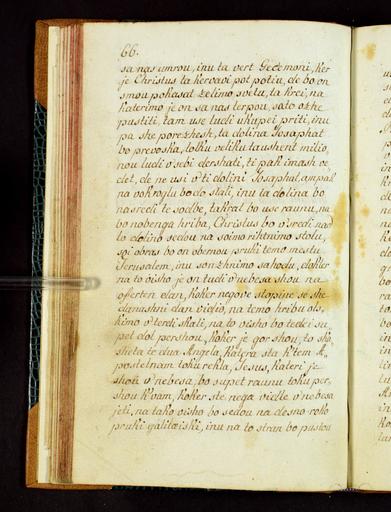 66.
sa nas umrou, inu ta vert Gečemoni, ker
je Christus ta kervavi pot potiu, de bo on
smou pokasat zelimo svitu, ta krei, na
katerimo je on sa nas terpou, sato ozhe
pustiti, tam use ludi ukupei priti, inu
pa ske porezhesh, ta dolina Josaphat
bo prevoska, tolku veliku taushent milio,
nou ludi v'sebi dershati, ti pak imash ve,
det, de ne usi v'ti dolini Josaphat, ampak
na vokroglu bodo stali, inu ta dolina bo
na sredi te sodbe, takrat bo use raunu, na
bo nobenga hriba, Christus bo v'sredi nad
to dolino sedou na soimo rihtnimo stolu,
soi obras bo on obernou pruki temo mestu
Jerusalem, inu sonzhnimo sahodu, dokler
na to visho je on tudi v'nebesa shou na
offerten dan, koker negove stopine se she
danashni dan vidio, na temo hribu ols,
kimo v'terdi skali, na to visho bo tedei su,
pet dol pershou, koker je gor shou, to sho,
sheta te dua Angela, katera sta k'tem A,
postelnam toku rekla, Jesus, kateri je
shou v'nebesa, bo supet raunu toku per,
shou k'vam, koker ste nega vidle v'nebesa
jeti, na tako visho bo sedou na desno roko
pruki galilæiski, inu na to stran bo pustou